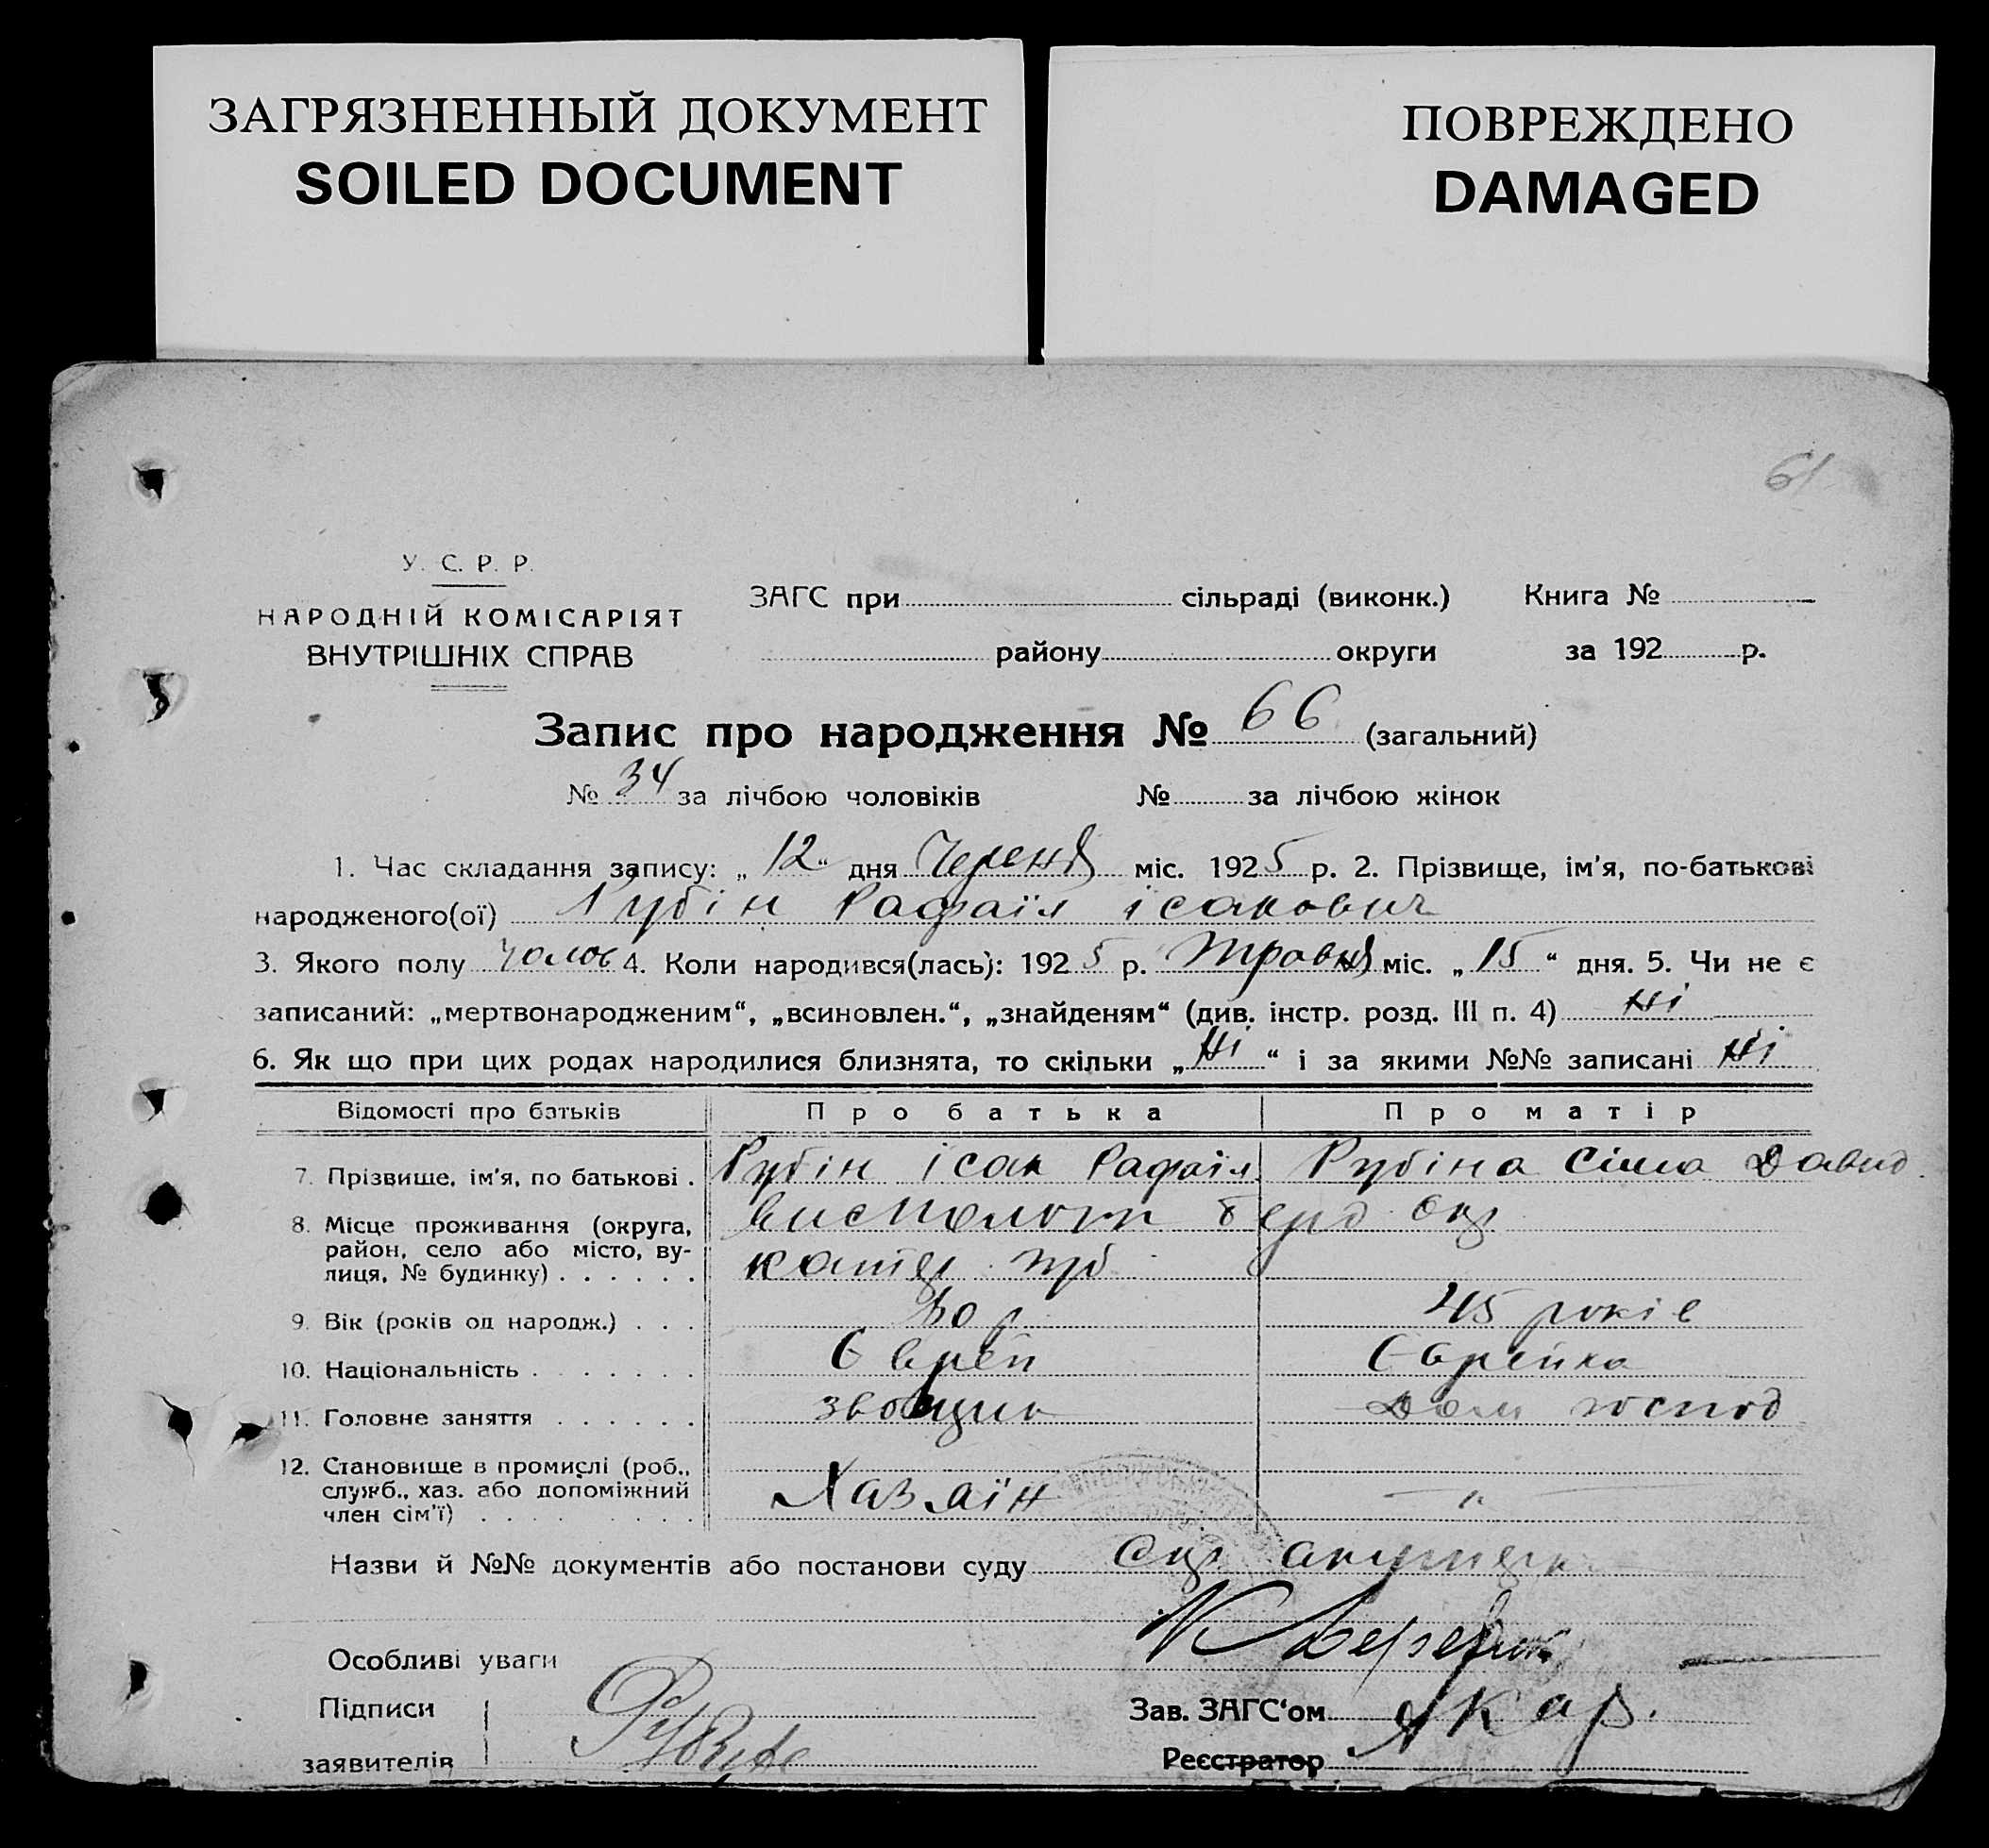 ЗАГРЯЗНЕННЫЙ ДОКУМЕНТ
SOILED DOCUMENT
ПОВРЕЖДЕНО
DAMAGED
61
У. С. Р. Р.
НАРОДНІЙ КОМІСАРІЯТ
ВНУТРІШНІХ СПРАВ
ЗАГС при сільраді (виконк.) Книга №
району округи за 192 р.
Запис про народження № 66 (загальний)
№ 34 за лічбою чоловіків № за лічбою жінок
1. Час складання запису: „ 12 “ дня Червня міс. 1925 р. 2. Прізвище, ім'я, по-батькові
народженого(ої) Рубін Рафаїл ісакович
3. Якого полу чолов 4. Коли народився(лась): 1925 р. Травня міс. „ 15 “ дня. 5. Чи не є
записаний: „мертвонародженим“, „всиновлен.“, „знайденям“ (див. інстр. розд. III п. 4) Ні
6. Як що при цих родах народилися близнята, то скільки „ Ні “ і за якими №№ записані Ні
Відомості про батьків Про батька Про матір
7. Прізвище, ім'я, по батькові . Рубін ісак Рафаїл Рубіна Сіма Давид
8. Місце проживання (округа,
район, село або місто, ву-
лиця, № будинку) . . . . . .
9. Вік (років од народж.) . . . 45 років
10. Національність . . . . . . . Єврей Єврейка
11. Головне заняття . . . . . . Дом господ
12. Становище в промислі (роб.,
служб., хаз. або допоміжний
член сім'ї) . . . . . . . . . Хазяїн — " —
Назви й №№ документів або постанови суду
Особливі уваги
Підписи
заявителів
Зав. ЗАГС‘ом
Реєстратор